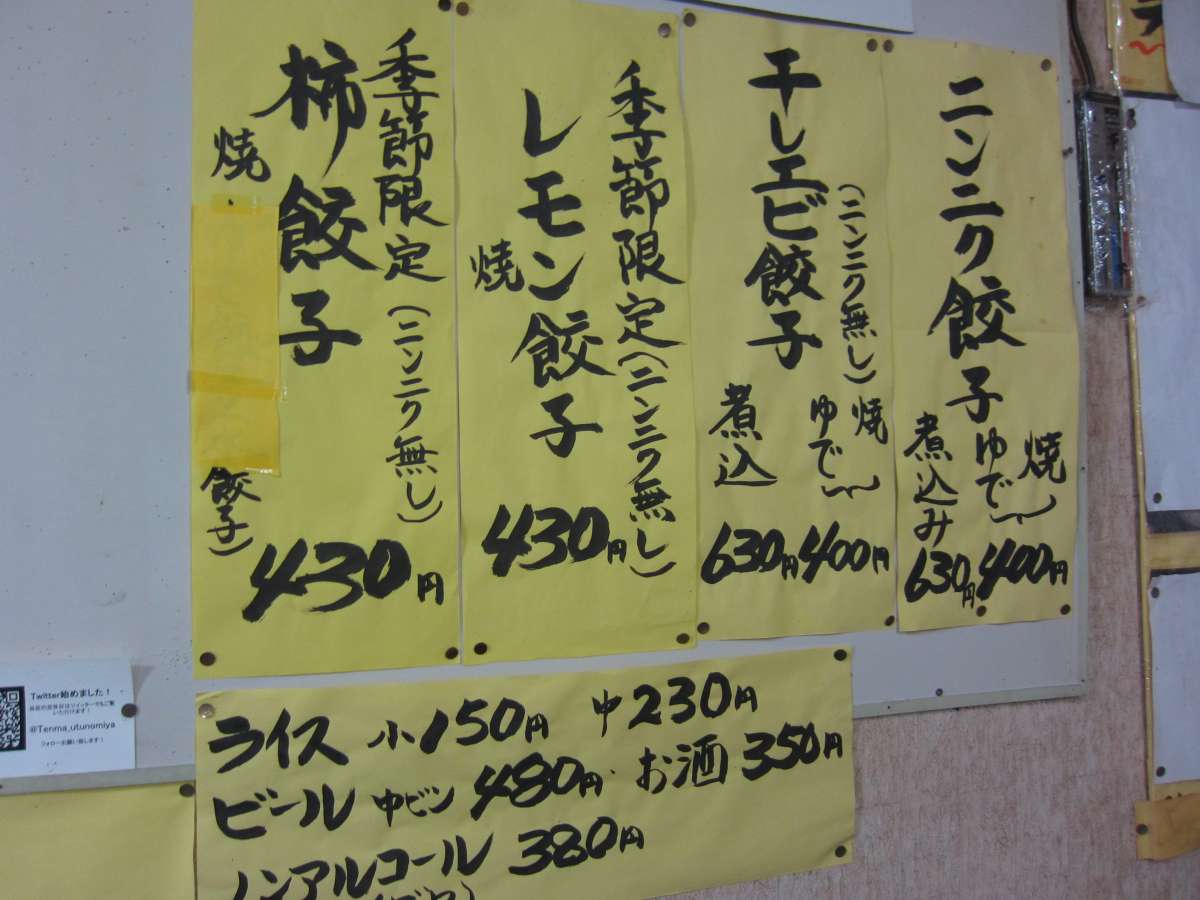 ニンニク餃子
焼
ゆで
400円
煮込み
630円
干しエビ餃子
(ニンニク無し)
焼
ゆで
400円
煮込
630円
季節限定(ニンニク無し)
レモン餃子
焼
430円
季節限定(ニンニク無し)
柿餃子
焼
餃子)
430円
ライス 小150円 中230円
ビール 中ビン 480円 お酒 350円
ノンアルコール 380円
Twitter始めました!
@Tenma_utunomiya
フォローお願い致します!